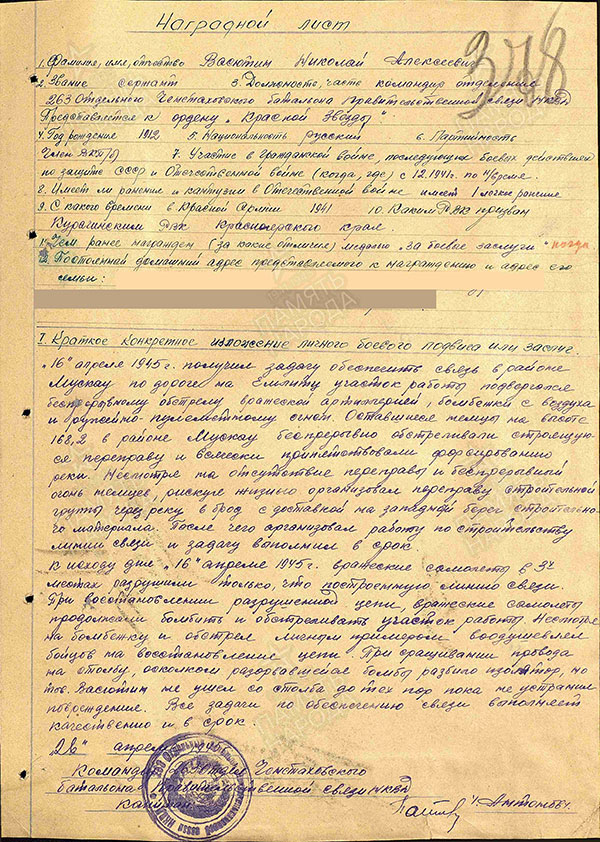 Наградной лист
378
1. Фамилия, имя, отчество Васютин Николай Алексеевич
2. Звание сержант 3. Должность, часть командир отделения
263 Отдельного Ченстаховского батальона Правительственной связи НКВД
Представляется к ордену „Красной Звезды"
4. Год рождение 1912 5. Национальность русский 6. Партийность
Член ВКП/б/ 7. Участие в гражданской войне, последующих боевых действиях
по защите СССР и Отечественной войне (когда, где) с 12.1941г. по н/время.
8. Имеет ли ранения и контузии в Отечественной войне имеет 1 легкое ранение
9. С какого времени в Красной Армии 1941 10. Каким РВК призван
Курагинским РВК Красноярского края.
11. Чем ранее награжден (за какие отличия) медалью „За боевые заслуги"
12. Постоянный домашний адрес представляемого к награждению и адрес его
семьи:
ПАМЯТЬ НАРОДА
I. Краткое конкретное изложение личного боевого подвига или заслуг.
„16" апреля 1945 г. получил задачу обеспечить связь в районе
Мускау по дороге на участок работы подвергался
беспрерывному обстрелу вражеской артиллерией, бомбежки с воздуха
и ружейно-пулеметному огню. Оставшиеся немцы на высоте
168,2 в районе Мускау беспрерывно обстреливали строящую-
ся переправу и всячески припятствовали форсированию
реки. Несмотря на отсутствие переправы и беспрерывной
огонь немцев, рискуя жизнью организовал переправу строительной
группы через реку в брод с доставкой на западной берег строительно-
го материала. После чего организовал работу по строительству
линии связи и задачу выполнил в срок.
К исходу дня „16" апреля 1945г. вражеские самолеты в 3х
местах разрушили только, что построенную линию связи.
При восстановлении разрушенной цепи, вражеские самолеты
продолжали бомбить и обстреливать участок работы. Несмотря
на бомбежку и обстрел личным примером воодушевлял
бойцов на восстановление цепи. При сращивании провода
на столбу, осколком разорвавшейся бомбы разбило изолятор, но
тов. Васютин не ушел со столба до тех пор пока не устранил
повреждение. Все задачи по обеспечению связи выполняет
качественно и в срок.
„26" апреля
Командир Ченстаховского
батальона Правительственной связи НКВД
капитан /Антонов/